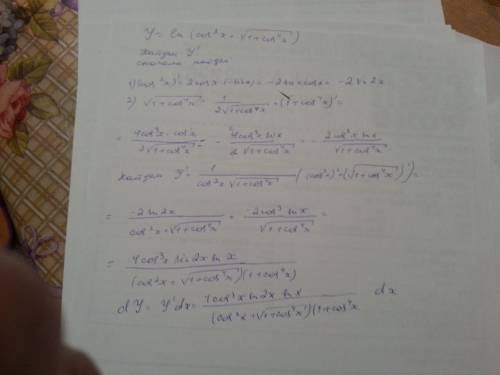 y = ln (cos²x + √1+cos⁴x)
Найдем y'
сначала найдем
1) (cos²x)' = 2cosx (-sinx) = -2sinxcosx = -2 sin 2x
2) √1+cos⁴x' = 1/(2√1+cos⁴x) · (1+cos⁴x)' =
= 4cos³x · cos'x / 2√1+cos⁴x = - 4cos³x sinx / 2√1+cos⁴x = - 2cos³x sinx / √1+cos⁴x
Найдем y' = 1/(cos²x √1+cos⁴x) · ((cos²x)' + (√1+cos⁴x)') =
= -2 sin 2x / (cos²x + √1+cos⁴x) · -2cos³ sinx / √1+cos⁴x =
= 4cos³x sin 2x sin x / (cos²x + √1+cos⁴x)(1+cos⁴x)
dy = y'dx = 4cos³x sin 2x sinx / (cos²x + √1+cos⁴x)(1+cos⁴x dx